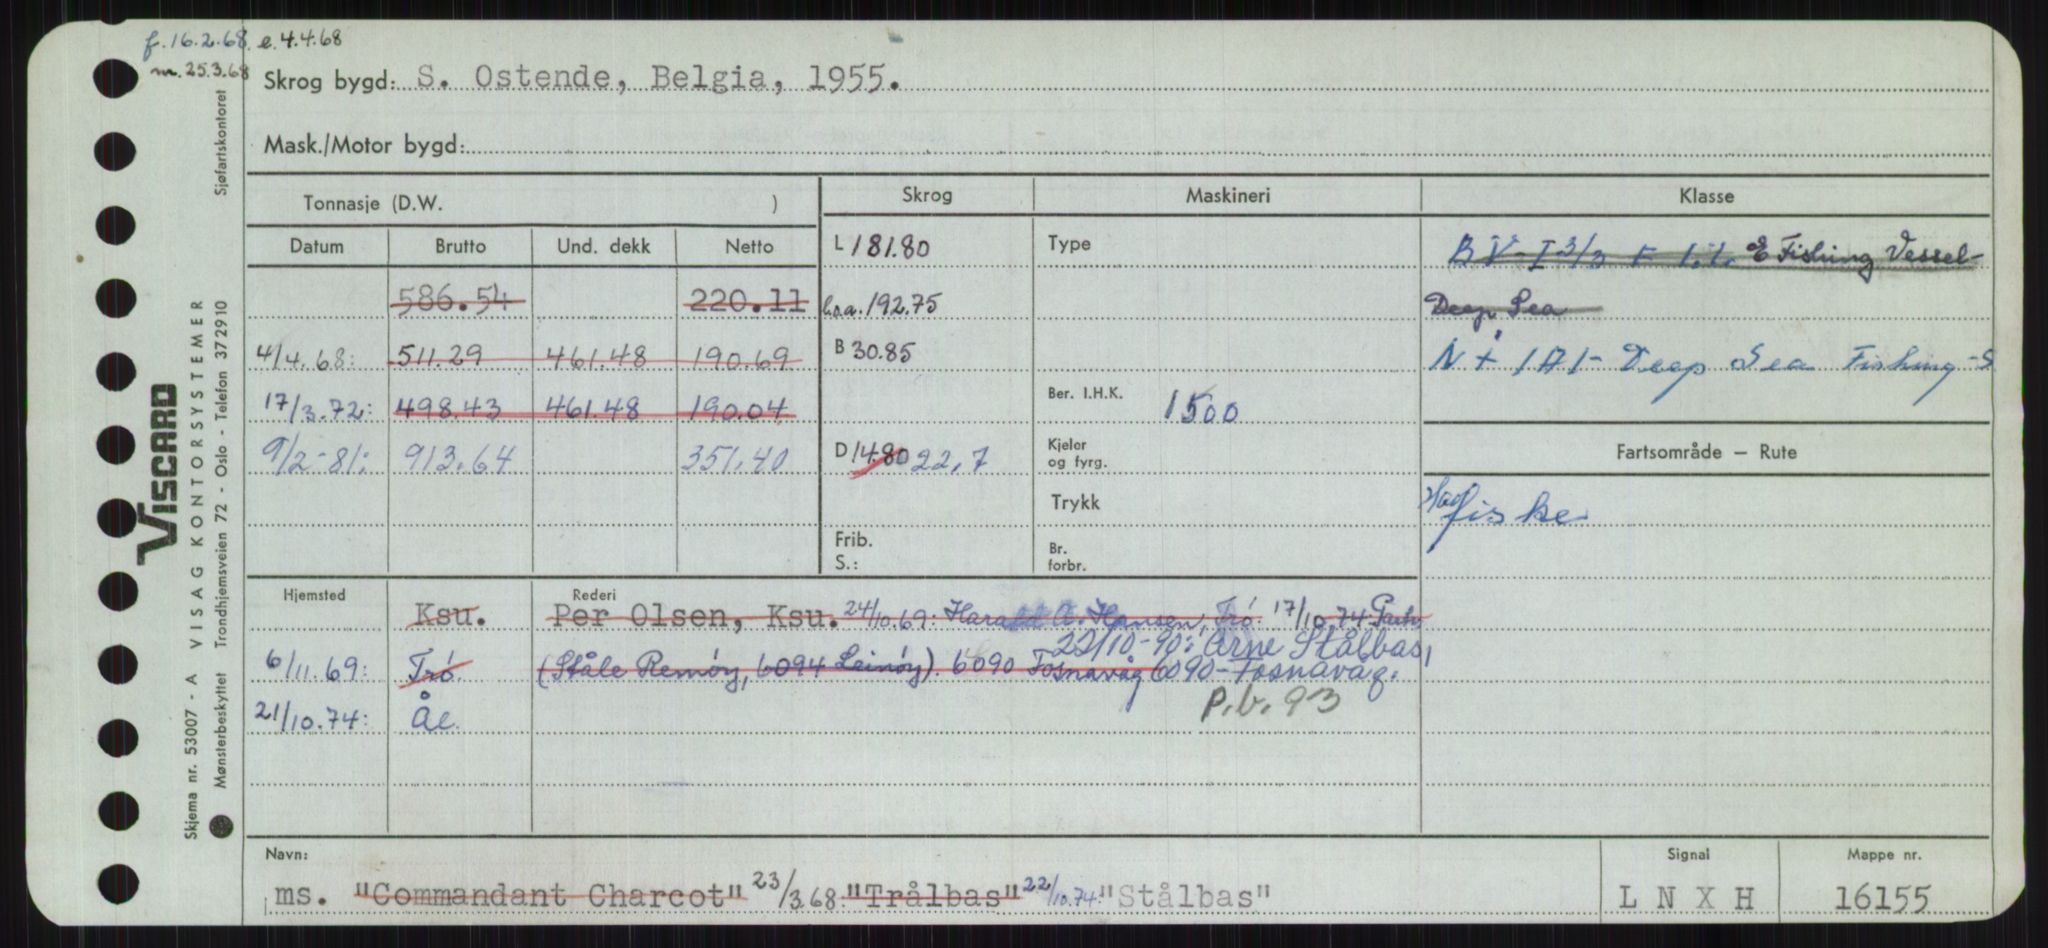 f. 16.2.68. e. 4.4.68
m. 25.3.68
Skrog bygd: S. Ostende, Belgia, 1955.
Mask./Motor bygd:
Tonnasje (D.W. )
Skrog
Maskineri
Klasse
Datum Brutto Und. dekk Netto
586.54 220.11
4/4.68: 511.29 461.48 190.69
17/3.72: 498.43 461.48 190.04
9/2-81: 913.64 351,40
L 181.80
l.o.a. 192.75
B 30.85
D 14.80 22,7
Frib.
S.:
Type
Ber. I.H.K. 1500
Kjeler
og fyrg.
Trykk
Br.
forbr.
BV I 3/3 F 1.1. E Fishing Vessel-
Deep Sea
N + 1A1- Deep Sea Fishing -S
Fartsområde – Rute
Hav
fiske
Hjemsted Rederi
Ksu. Per Olsen, Ksu. 24/10.69: Harald A. Hansen, Trö. 17/10.74 Partr
22/10-90: Arne Stålbas,
6/11.69: Trö. (Ståle Remöy, 6094 Leinöy). 6090 Fosnavåg 6090-Fosnavåg.
21/10.74: Ål. P.b. 93
Navn:
ms. "Commandant Charcot" 23/3.68: "Trålbas" 22/10.74: "Stålbas"
Signal
L N X H
Mappe nr.
16155
VISCARD
Skjema nr. 53007 - A VISAG KONTORSYSTEMER
Mønsterbeskyttet Trondhjemsveien 72 - Oslo - Telefon 372910 Sjøfartskontoret